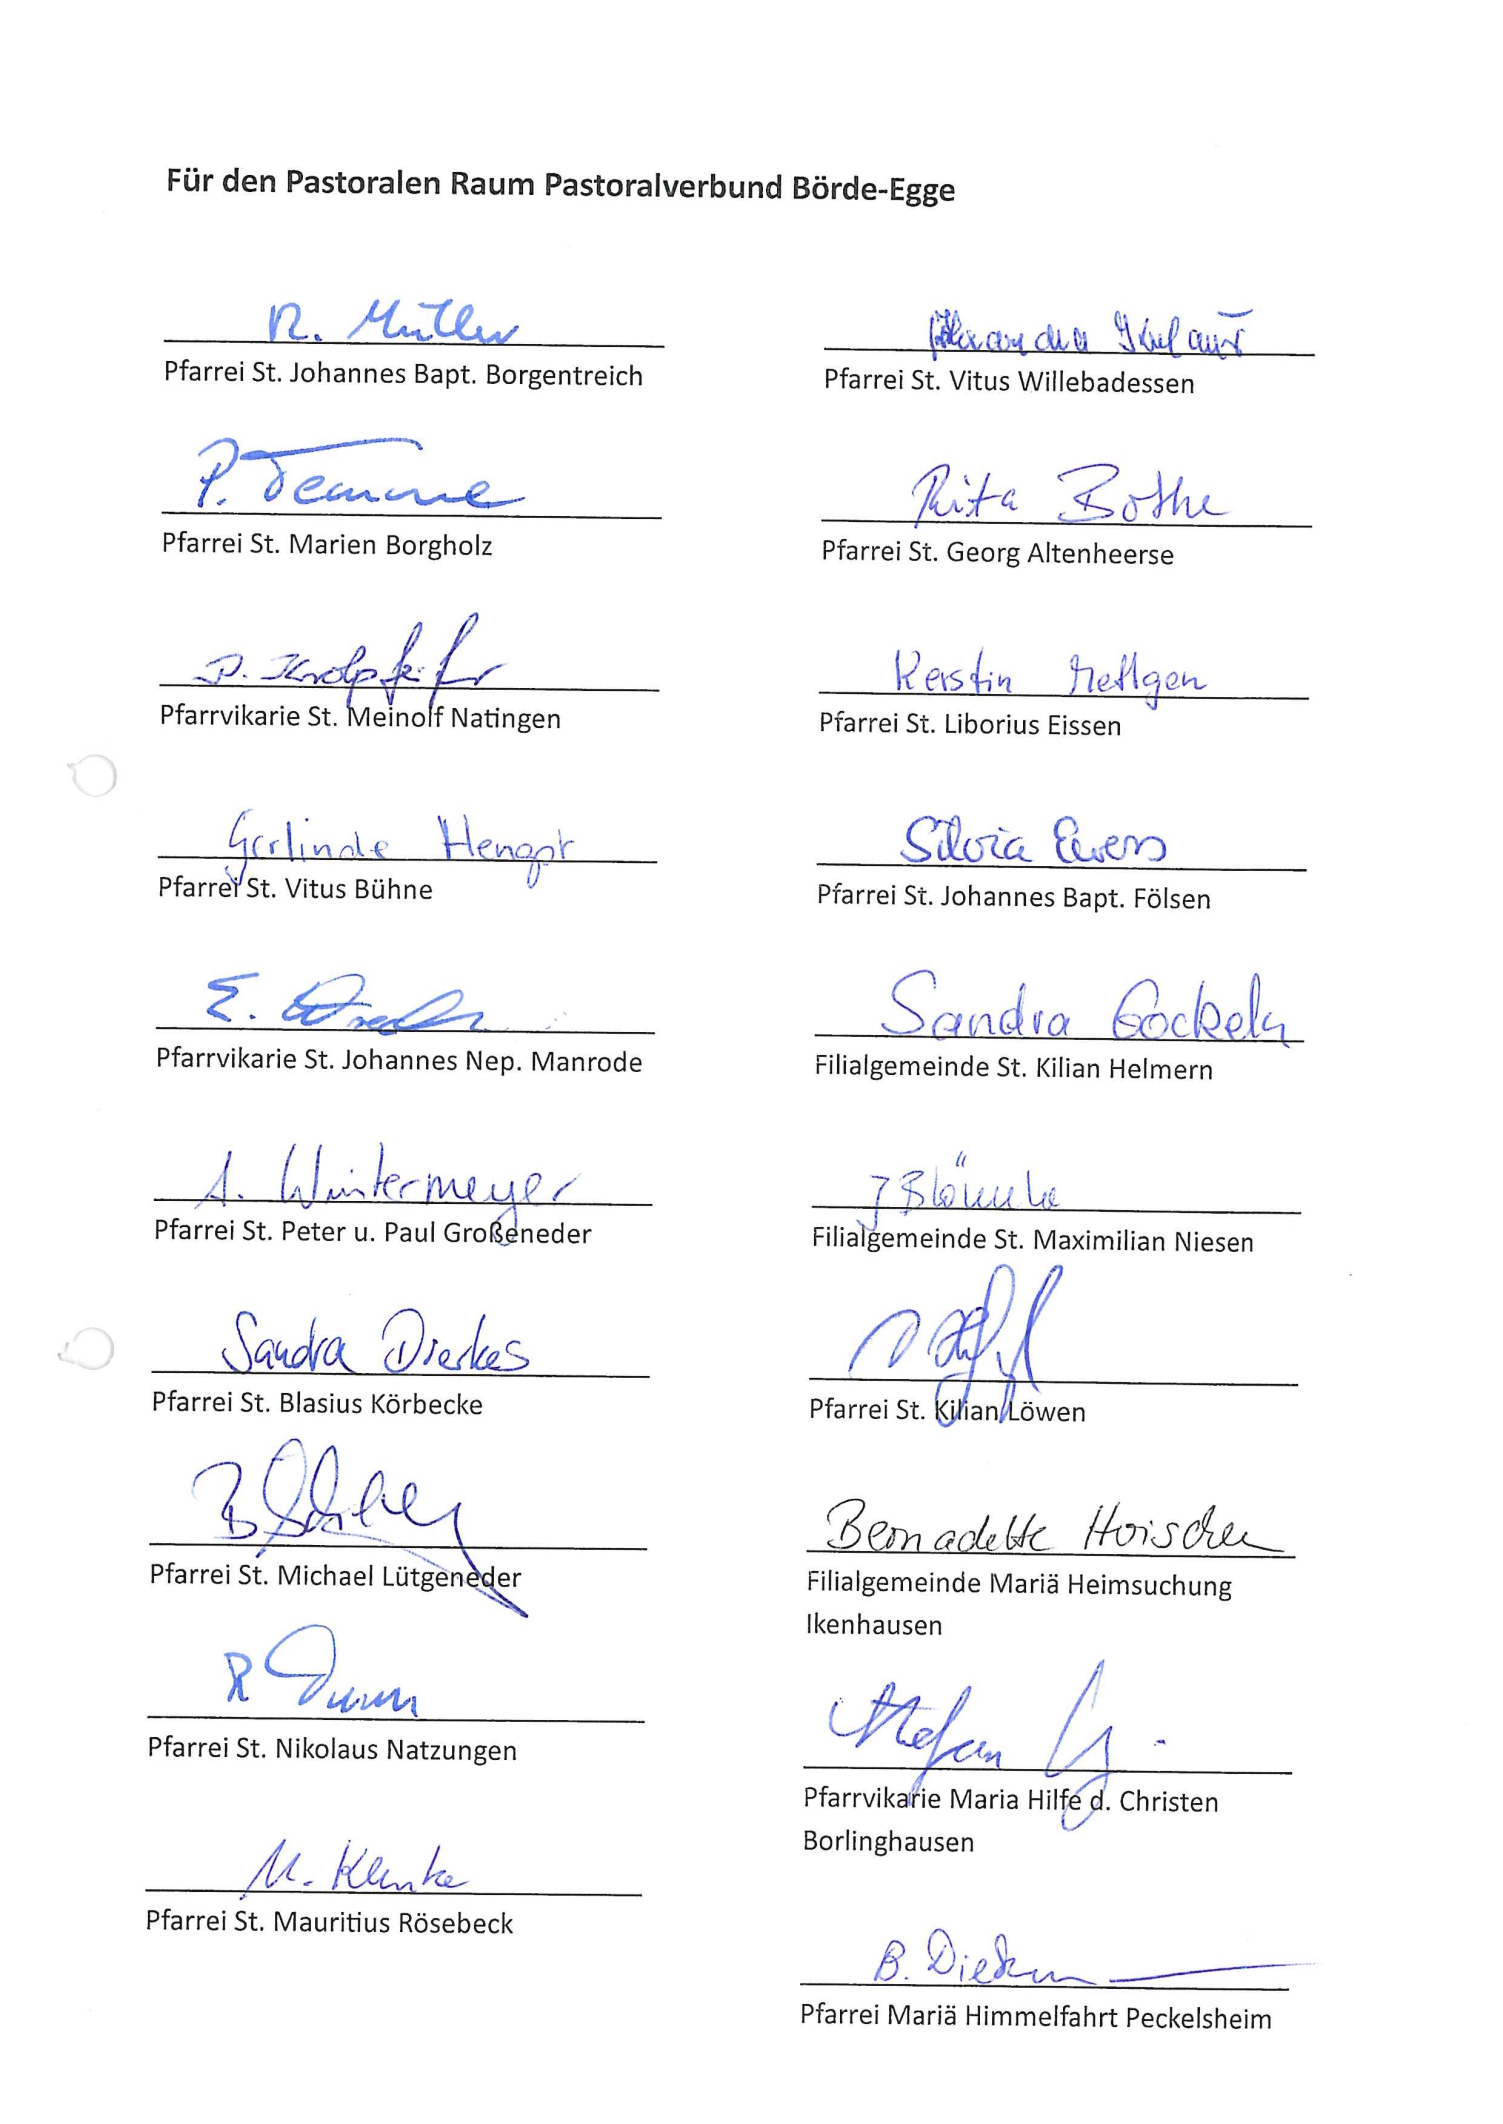 Für den Pastoralen Raum Pastoralverbund Börde-Egge
R. Müller
Pfarrei St. Johannes Bapt. Borgentreich
P. Temme
Pfarrei St. Marien Borgholz
Pfarrvikarie St. Meinolf Natingen
Gerlinde
Pfarrei St. Vitus Bühne
E.
Pfarrvikarie St. Johannes Nep. Manrode
A. Wintermeyer
Pfarrei St. Peter u. Paul Großeneder
Sandra Dierkes
Pfarrei St. Blasius Körbecke
B
Pfarrei St. Michael Lütgeneder
R
Pfarrei St. Nikolaus Natzungen
M. Klenke
Pfarrei St. Mauritius Rösebeck
Alexandra
Pfarrei St. Vitus Willebadessen
Rita Bothe
Pfarrei St. Georg Altenheerse
Kerstin
Pfarrei St. Liborius Eissen
Silvia Ewers
Pfarrei St. Johannes Bapt. Fölsen
Sandra Gockeln
Filialgemeinde St. Kilian Helmern
Filialgemeinde St. Maximilian Niesen
Pfarrei St. Kilian Löwen
Bernadette Hoischen
Filialgemeinde Mariä Heimsuchung
Ikenhausen
Stefan
Pfarrvikarie Maria Hilfe d. Christen
Borlinghausen
B.
Pfarrei Mariä Himmelfahrt Peckelsheim